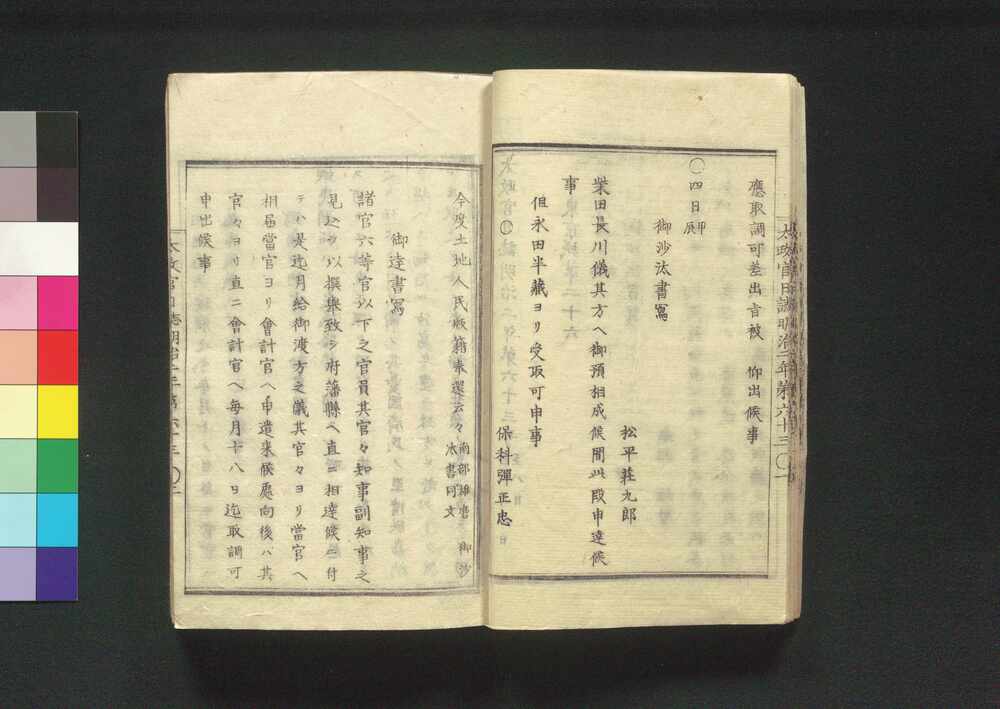 太政官日誌明治二年第六十三 〇一
應取調可差出旨被 仰出候事
〇四日甲辰
御沙汰書寫
松平莊九郎
柴田長川儀其方ヘ御預相成候間此段申達候
事
但永田半藏ヨリ受取可申事
保科彈正忠
今度土地人民版籍奉還云々南部雄麿御沙汰書同文
御達書寫
諸官六等官以下之官員其官々知事副知事之
見込ヲ以撰擧致シ府藩縣ヘ直ニ相達候ニ付
テハ是迄月給御渡方之儀其官々ヨリ當官ヘ
相届當官ヨリ會計官ヘ申遣来候處向後ハ其
官々ヨリ直ニ會計官ヘ毎月十八日迄取調可
申出候事